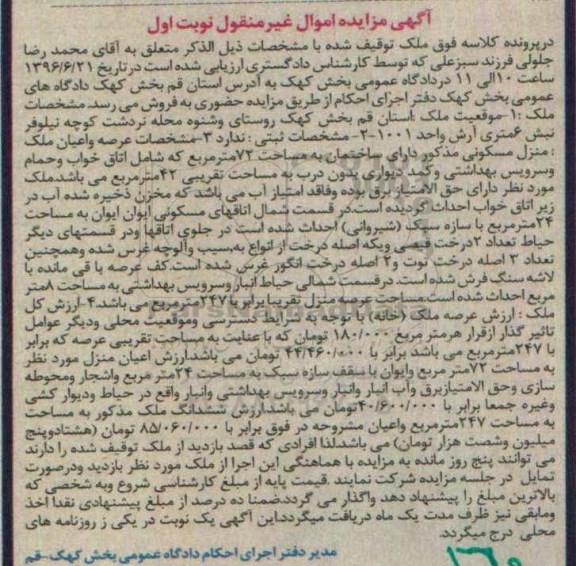 آگهی مزایده اموال غیرمنقول نوبت اول
درپرونده کلاسه فوق ملک توقیف شده با مشخصات ذیل الذکر متعلق به آقای محمد رضا
جلولی فرزند سبزعلی که توسط کارشناس دادگستری ارزیابی شده است درتاریخ ۱۳۹۶/۶/۲۱
ساعت ۱۰الی ۱۱ دردادگاه عمومی بخش کهک به آدرس استان قم بخش کهک دادگاه های
عمومی بخش کهک دفتر اجرای احکام از طریق مزایده حضوری به فروش می رسد. مشخصات
ملک :۱-موقعیت ملک :استان قم بخش کهک روستای وشنوه محله نردشت کوچه نیلوفر
نبش ۶متری آرش واحد ۱۰۰۱-۲- مشخصات ثبتی : ندارد ۳-مشخصات عرصه واعیان ملک
: منزل مسکونی مذکور دارای ساختمان به مساحت ۷۲مترمربع که شامل اتاق خواب وحمام
وسرویس بهداشتی وکمد دیواری بدون درب به مساحت تقریبی ۴۲مترمربع می باشدملک
مورد نظر دارای حق الامتیاز برق بوده وفاقد امتیاز آب می باشد که مخزن ذخیره شده آب در
زیر اتاق خواب احداث گردیده است.در قسمت شمال اتاقهای مسکونی ایوان ایوان به مساحت
۲۴مترمربع با سازه سبک (شیروانی) احداث شده است در جلوی اتاقها ودر قسمتهای دیگر
حیاط تعداد ۲درخت قیصی ویکه اصله درخت از انواع به،سیب وآلوچه غرس شده وهمچنین
تعداد ۳ اصله درخت توت و۲ اصله درخت انگور غرس شده است.کف عرصه با قی مانده با
لاشه سنگ فرش شده است. درقسمت شمالی حیاط انبار وسرویس بهداشتی به مساحت ۸متر
مربع احداث شده است.مساحت عرصه منزل تقریبا برابر با ۲۴۷مترمربع می باشد.۴-ارزش کل
ملک : ارزش عرصه ملک (خانه) با توجه به شرایط دسترسی وموقعیت محلی ودیگر عوامل
تاثیر گذار ازقرار هرمتر مربع ۱۸۰/۰۰۰ تومان که با عنایت به مساحت تقریبی عرصه که برابر
با ۲۴۷مترمربع می باشد برابر با ۴۴/۴۶۰/۰۰۰ تومان می باشدارزش اعیان منزل مورد نظر
به مساحت ۷۲متر مربع وایوان با سقف سازه سبک به مساحت ۲۴متر مربع واشجار ومحوطه
سازی وحق الامتیازبرق وآب انبار وانبار وسرویس بهداشتی وانبار واقع در حیاط ودیوار کشی
وغیره جمعا برابر با ۴۰/۶۰۰/۰۰۰تومان می باشدارزش ششدانگ ملک مذکور به مساحت
به مساحت ۲۴۷مترمربع واعیان مشروحه در فوق برابر با ۸۵/۰۶۰/۰۰۰ تومان (هشتادوپنج
میلیون وشصت هزار تومان) می باشد.لذا افرادی که قصد بازدید از ملک توقیف شده را دارند
می توانند پنج روز مانده به مزایده با هماهنگی این اجرا از ملک مورد نظر بازدید ودرصورت
تمایل در جلسه مزایده شرکت نمایند .قیمت پایه از مبلغ کارشناسی شروع وبه شخصی که
بالاترین مبلغ را پیشنهاد دهد واگذار می گردد.ضمنا ده درصد از مبلغ پیشنهادی نقدا اخذ
ومابقی نیز ظرف مدت یک ماه دریافت میگردد.این آگهی یک نوبت در یکی ز روزنامه های
محلی درج میگردد.
مدیر دفتر اجرای احکام دادگاه عمومی بخش کهک-قم